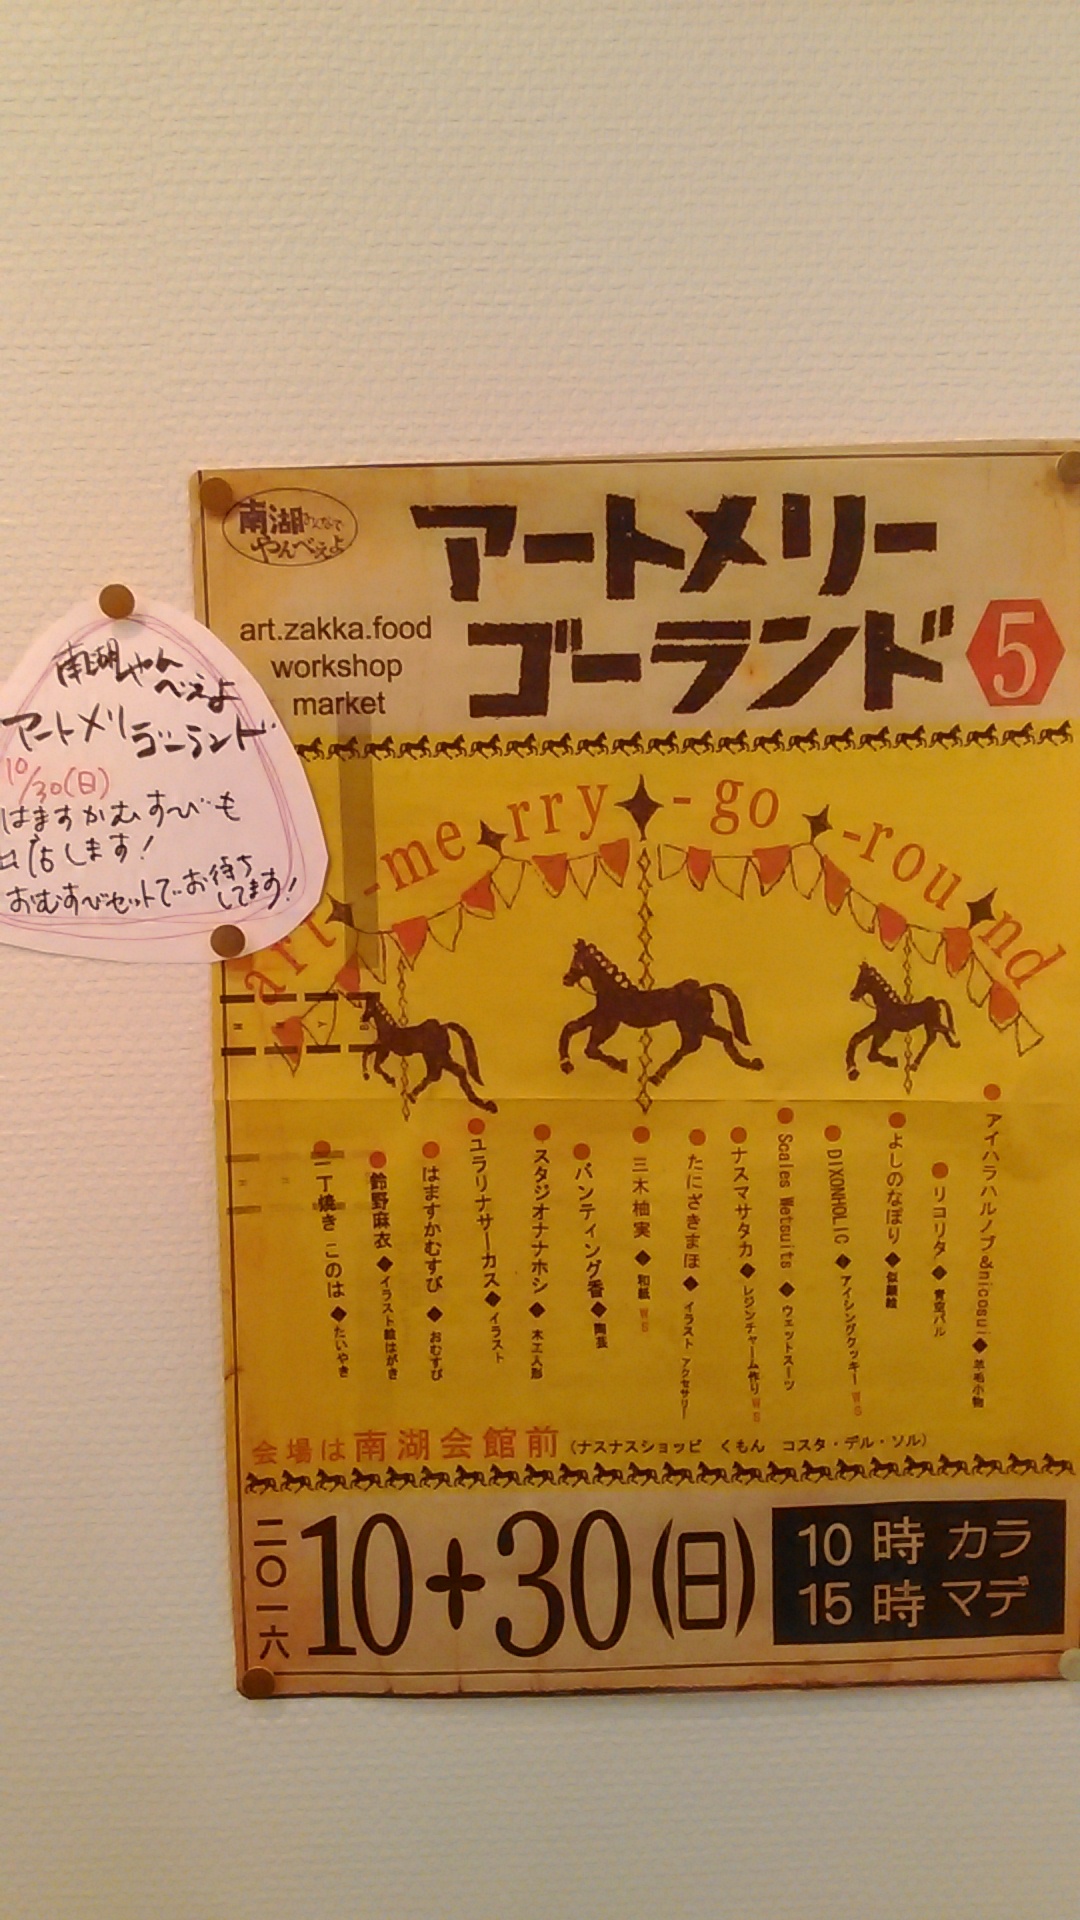 南湖みんなで
やんべぇよ
アートメリー
ゴーランド
5
art.zakka.food
workshop
market
南湖やんべぇよ
アートメリーゴーランド
10/30(日)
はますかむすびも
出店します!
おむすびセットでお待ちしてます!
art-merry-go-round
アイハラハルノブ&nicosui◆羊毛小物
リコリタ◆青空バル
よしのなぼり◆似顔絵
DIXONHOLIC◆アイシングクッキーWS
Scales Wetsuits◆ウェットスーツ
ナスマサタカ◆レジンチャーム作りWS
たにざきまほ◆イラスト アクセサリー
三木柚実◆和紙WS
バンティング香◆陶芸
スタジオナナホシ◆木工人形
ユラリナサーカス◆イラスト
はますかむすび◆おむすび
鈴野麻衣◆イラスト絵はがき
一丁焼き このは◆たいやき
会場は南湖会館前(ナスナスショッピ くもん コスタ・デル・ソル)
二〇一六
10+30(日)
10時カラ
15時マデ